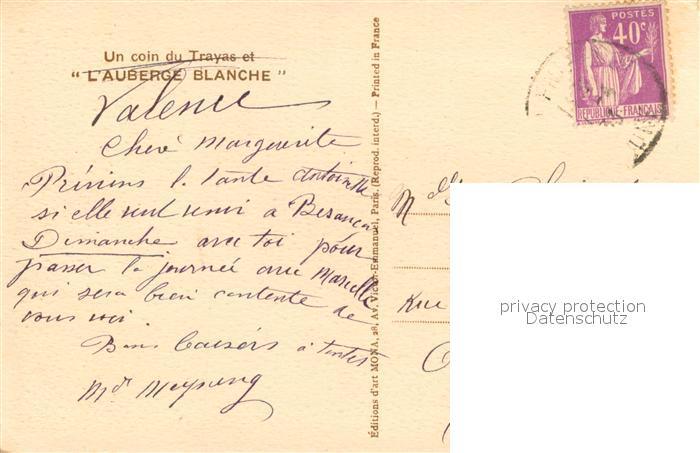 Un coin du Trayas et
" L'AUBERGE BLANCHE "
Valence
Chère Marguerite
Préviens l. tante Antoinette
si elle veut venir a Besançon
Dimanche avec toi pour
passer la journée avec Marcelle
qui sera bien contente de
vous voir.
Bons baisers à toutes
Editions d'art MONA, 28, Av. Victor-Emmanuel, Paris. (Reprod. interd.) — Printed in France
POSTES
40c
REPUBLIQUE-FRANCAISE
M
Rue
privacy protection
Datenschutz